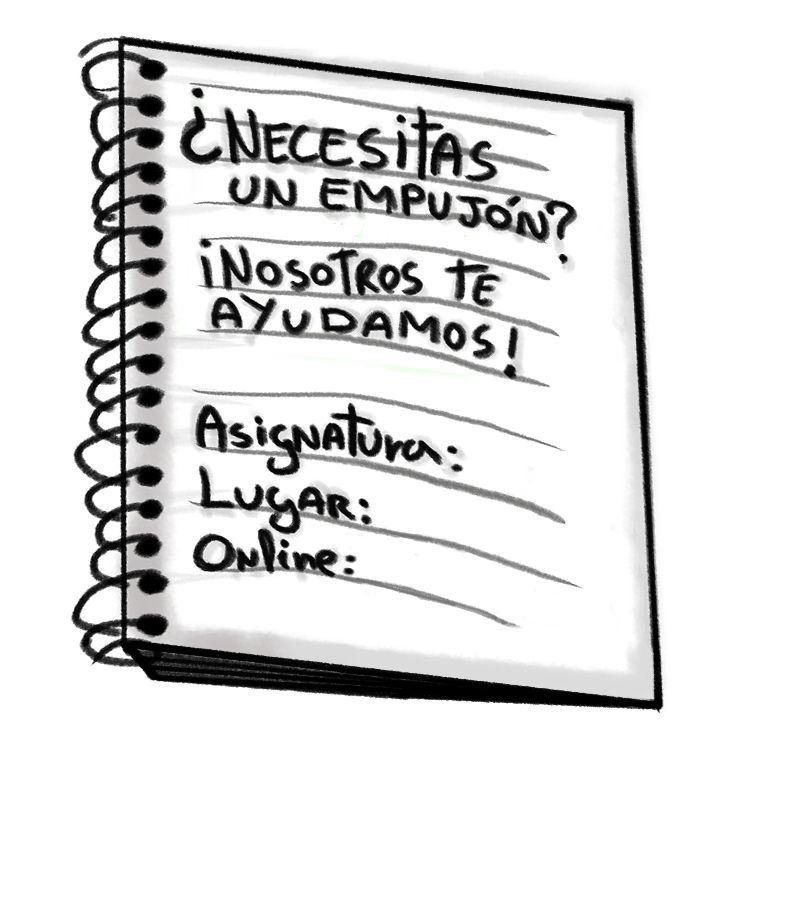 ¿NECESITAS
UN EMPUJÓN?
¡NOSOTROS TE
AYUDAMOS!
Asignatura:
LUGAR:
Online: